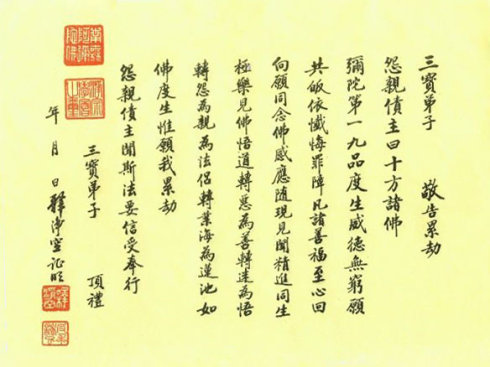 三寶弟子 敬告累劫
怨親債主曰十方諸佛
彌陀第一九品度生威德無窮願
共皈依懺悔罪障凡諸善福至心回
向願同念佛感應隨現見聞精進同生
極樂見佛悟道轉惡為善轉迷為悟
轉怨為親為法侶轉業海為蓮池如
佛度生惟願我累劫
怨親債主聞斯法要信受奉行
三寶弟子 頂禮
年 月 日 釋淨空證明
南無阿彌陀佛